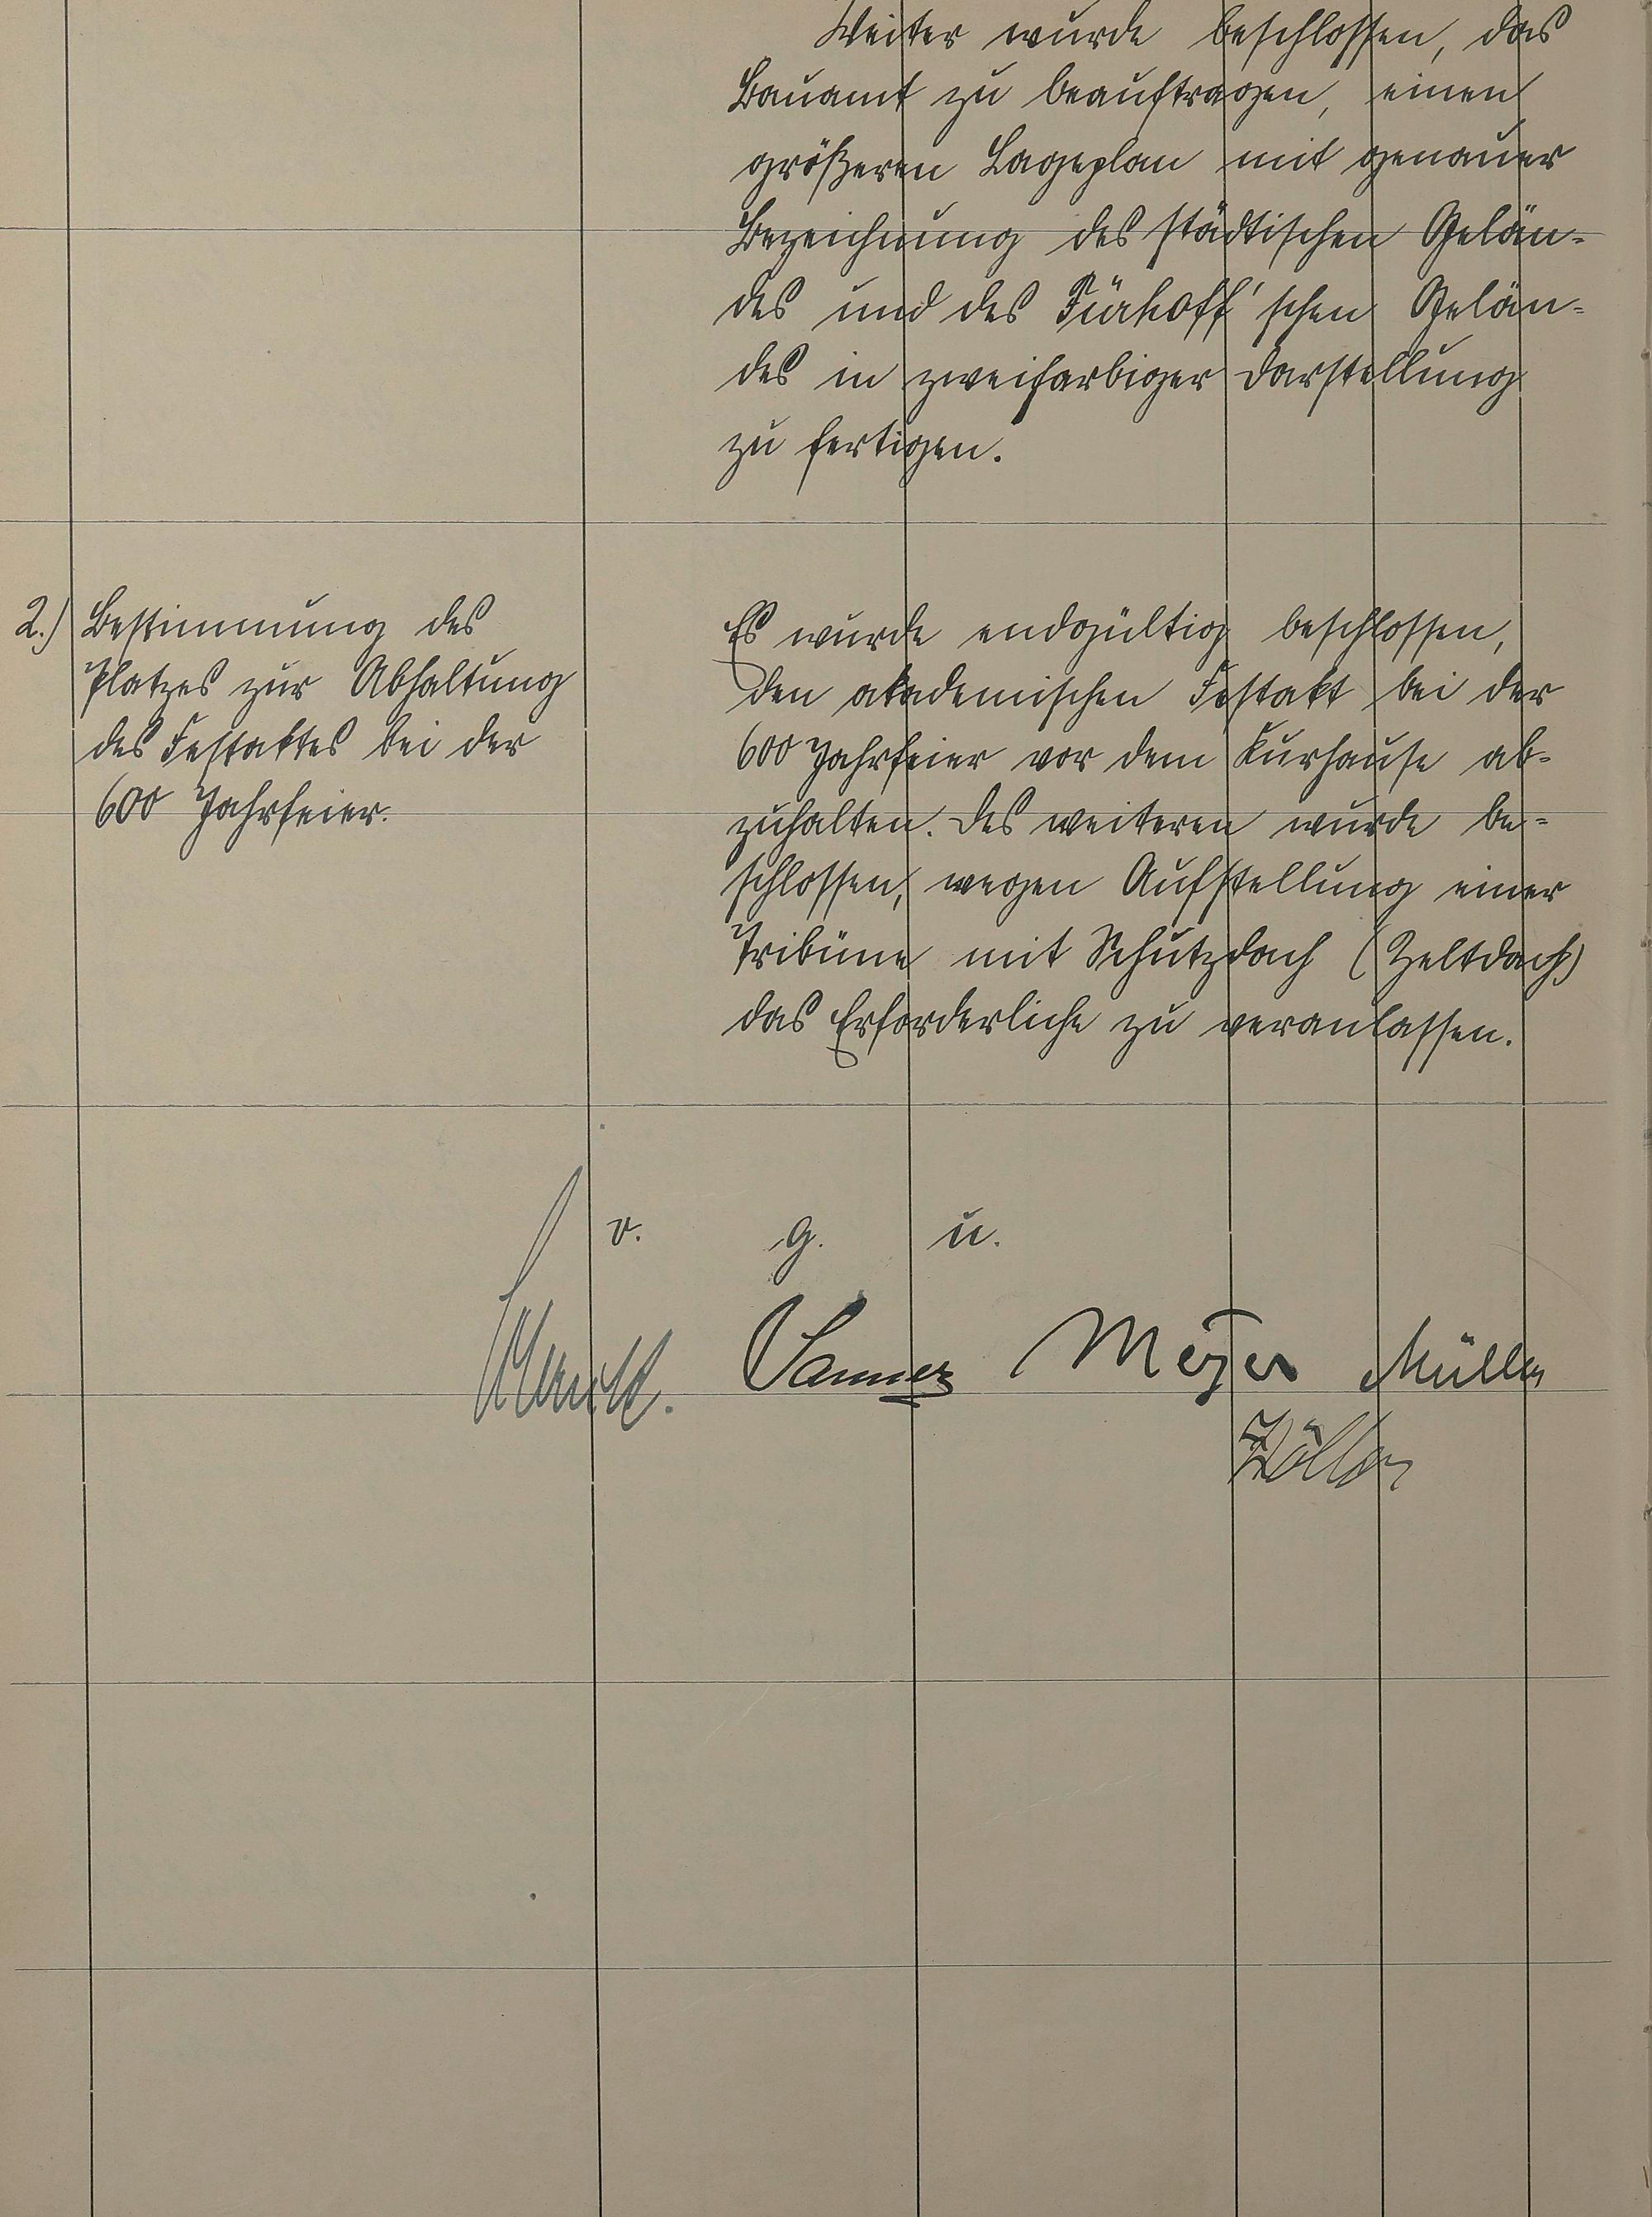 Weiter wurde beschlossen, das
Bauamt zu beauftragen, einen
größeren Lageplan mit genauer
Bezeichnung des städtischen Gelän-
des und des Fürhoff'schen Gelän-
des in zweifarbiger Darstellung
zu fertigen.
2.) Bestimmung des
Platzes zur Abhaltung
des Festaktes bei der
600 Jahrfeier.
Es wurde endgültig beschlossen,
den akademischen Festakt bei der
600 Jahrfeier vor dem Kurhause ab-
zuhalten. Des weiteren wurde be-
schlossen, wegen Aufstellung einer
Tribüne mit Schutzdach (Zeltdach)
das Erforderliche zu veranlassen.
v. g. u.
Sanner Meyer Müller